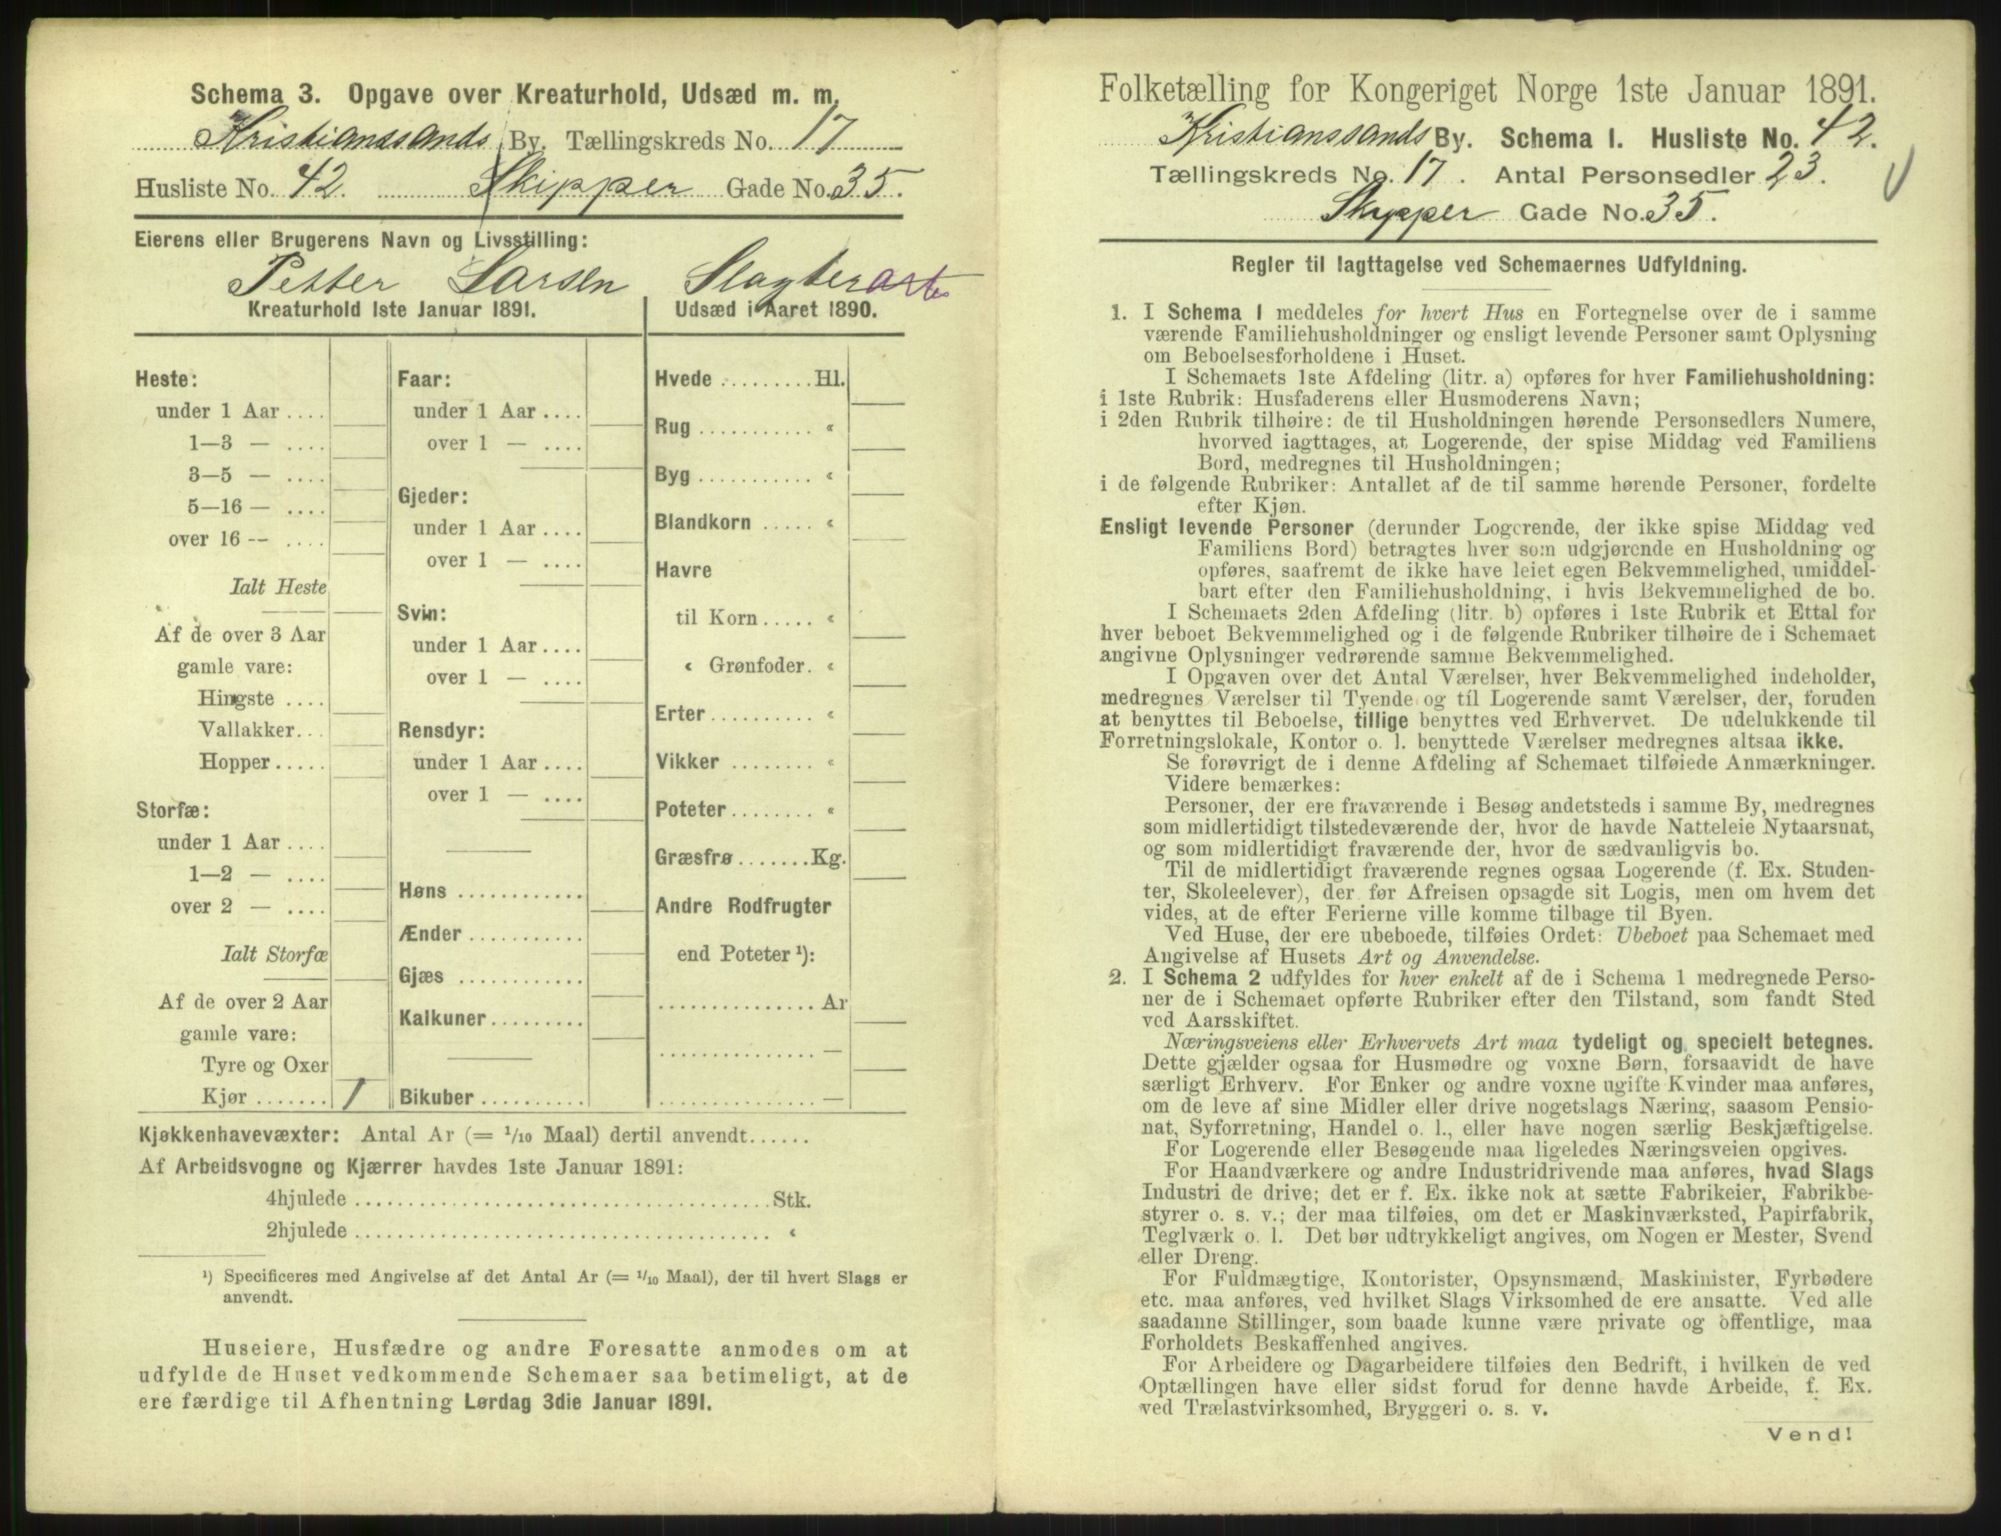 Schema 3. Opgave over Kreaturhold, Udsæd m. m.
Kristianssands By. Tællingskreds No. 17
Husliste No. 42. Skipper Gade No. 35.
Eierens eller Brugerens Navn og Livsstilling:
Petter Larsen Slagter
Kreaturhold 1ste Januar 1891.
Heste:
under 1 Aar ....
1—3 — ....
3—5 — ....
5—16 — ....
over 16 — ....
Ialt Heste
Af de over 3 Aar
gamle vare:
Hingste ....
Vallakker...
Hopper.....
Storfæ:
under 1 Aar ....
1—2 — ....
over 2 — ....
Ialt Storfæ
Af de over 2 Aar
gamle vare:
Tyre og Oxer
Kjør ....... 1
Faar:
under 1 Aar ....
over 1 — ....
Gjeder:
under 1 Aar ....
over 1 — ....
Svin:
under 1 Aar ....
over 1 — ....
Rensdyr:
under 1 Aar ....
over 1 — ....
Høns ...........
Ænder ..........
Gjæs ...........
Kalkuner.........
Bikuber ..........
Udsæd i Aaret 1890.
Hvede .........Hl.
Rug ........... «
Byg ........... «
Blandkorn ..... «
Havre
til Korn ..... «
« Grønfoder. «
Erter.......... «
Vikker ........ «
Poteter........ «
Græsfrø.......Kg.
Andre Rodfrugter
end Poteter ¹):
............... Ar
............... —
............... —
Kjøkkenhavevæxter: Antal Ar (= 1/10 Maal) dertil anvendt......
Af Arbeidsvogne og Kjærrer havdes 1ste Januar 1891:
4hjulede ..................................... Stk.
2hjulede ..................................... «
¹) Specificeres med Angivelse af det Antal Ar (= 1/10 Maal), der til hvert Slags er
anvendt.
Huseiere, Husfædre og andre Foresatte anmodes om at
udfylde de Huset vedkommende Schemaer saa betimeligt, at de
ere færdige til Afhentning Lørdag 3die Januar 1891.
Folketælling for Kongeriget Norge 1ste Januar 1891.
Kristianssands By. Schema I. Husliste No. 42.
Tællingskreds No. 17. Antal Personsedler 23.
Skypper Gade No. 35.
Regler til Iagttagelse ved Schemaernes Udfyldning.
1. I Schema I meddeles for hvert Hus en Fortegnelse over de i samme
værende Familiehusholdninger og ensligt levende Personer samt Oplysning
om Beboelsesforholdene i Huset.
I Schemaets 1ste Afdeling (litr. a) opføres for hver Familiehusholdning:
i 1ste Rubrik: Husfaderens eller Husmoderens Navn;
i 2den Rubrik tilhøire: de til Husholdningen hørende Personsedlers Numere,
hvorved iagttages, at Logerende, der spise Middag ved Familiens
Bord, medregnes til Husholdningen;
i de følgende Rubriker: Antallet af de til samme hørende Personer, fordelte
efter Kjøn.
Ensligt levende Personer (derunder Logerende, der ikke spise Middag ved
Familiens Bord) betragtes hver som udgjørende en Husholdning og
opføres, saafremt de ikke have leiet egen Bekvemmelighed, umiddel-
bart efter den Familiehusholdning, i hvis Bekvemmelighed de bo.
I Schemaets 2den Afdeling (litr. b) opføres i 1ste Rubrik et Ettal for
hver beboet Bekvemmelighed og i de følgende Rubriker tilhøire de i Schemaet
angivne Oplysninger vedrørende samme Bekvemmelighed.
I Opgaven over det Antal Værelser, hver Bekvemmelighed indeholder,
medregnes Værelser til Tyende og til Logerende samt Værelser, der, foruden
at benyttes til Beboelse, tillige benyttes ved Erhvervet. De udelukkende til
Forretningslokale, Kontor o. l. benyttede Værelser medregnes altsaa ikke.
Se forøvrigt de i denne Afdeling af Schemaet tilføiede Anmærkninger.
Videre bemærkes:
Personer, der ere fraværende i Besøg andetsteds i samme By, medregnes
som midlertidigt tilstedeværende der, hvor de havde Natteleie Nytaarsnat,
og som midlertidigt fraværende der, hvor de sædvanligvis bo.
Til de midlertidigt fraværende regnes ogsaa Logerende (f. Ex. Studen-
ter, Skoleelever), der før Afreisen opsagde sit Logis, men om hvem det
vides, at de efter Ferierne ville komme tilbage til Byen.
Ved Huse, der ere ubeboede, tilføies Ordet: Ubeboet paa Schemaet med
Angivelse af Husets Art og Anvendelse.
2. I Schema 2 udfyldes for hver enkelt af de i Schema 1 medregnede Perso-
ner de i Schemaet opførte Rubriker efter den Tilstand, som fandt Sted
ved Aarsskiftet.
Næringsveiens eller Erhvervets Art maa tydeligt og specielt betegnes.
Dette gjælder ogsaa for Husmødre og voxne Børn, forsaavidt de have
særligt Erhverv. For Enker og andre voxne ugifte Kvinder maa anføres,
om de leve af sine Midler eller drive nogetslags Næring, saasom Pensio-
nat, Syforretning, Handel o. l., eller have nogen særlig Beskjæftigelse.
For Logerende eller Besøgende maa ligeledes Næringsveien opgives.
For Haandværkere og andre Industridrivende maa anføres, hvad Slags
Industri de drive; det er f. Ex. ikke nok at sætte Fabrikeier, Fabrikbe-
styrer o. s. v.; der maa tilføies, om det er Maskinværksted, Papirfabrik,
Teglværk o. l. Det bør udtrykkeligt angives, om Nogen er Mester, Svend
eller Dreng.
For Fuldmægtige, Kontorister, Opsynsmænd, Maskinister, Fyrbødere
etc. maa anføres, ved hvilket Slags Virksomhed de ere ansatte. Ved alle
saadanne Stillinger, som baade kunne være private og offentlige, maa
Forholdets Beskaffenhed angives.
For Arbeidere og Dagarbeidere tilføies den Bedrift, i hvilken de ved
Optællingen have eller sidst forud for denne havde Arbeide, f. Ex.
ved Trælastvirksomhed, Bryggeri o. s. v.
Vend!